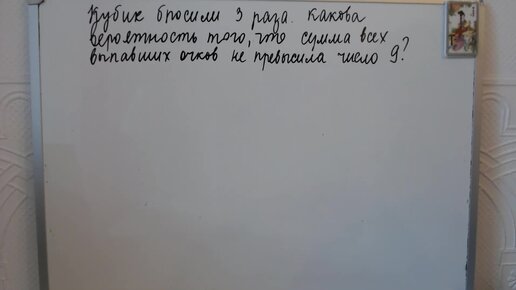 Кубик бросили 3 раза. Какова
вероятность того, что сумма всех
выпавших очков не превысила число 9?